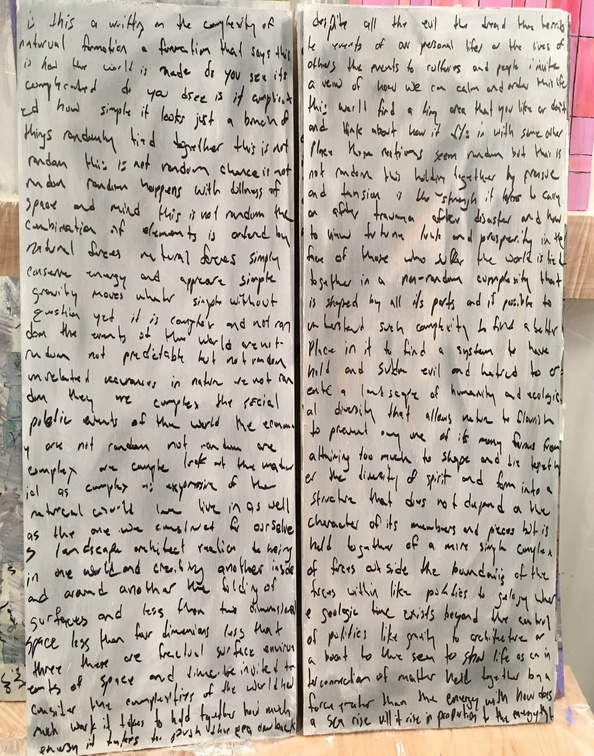 is this a written on the complexity of
natural formation a formation that says this
is how the world is made do you see its
complicated do you see is it complicat
ed how simple it looks just a bunch of
things randomly tied together this is not
random this is not random chance is not
random random happens with billions of
space and mind this is not random the
combination of elements is ordered by
natural forces natural forces simply
conserve energy and appear simple
gravity moves what simple without
question yet it is complex and not ran
dom the events of the world are not
random not predictable but not random
unrelated occurances in nature are not ran
dom they are complex the social
political events of the world the econom
y are not random not random are
complex are complex look at the mater
ial as complex as expressive of the
natural world we live in as well
as the one we construct for ourselve
s landscape architect reaction to being
in one world and creating another inside
and around another the folding of
surfaces and less than two dimensional
space less than four dimensions less that
three these are fractual surface environ
ments of space and time be invited to
consider the complexities of the world how
much work it takes to hold together how much
energy it takes to push
despite all the evil the dread the horrib
le events of our personal life or the lives of
others the events to cultures and people invite
a view of how we can calm and order this life
this world find a tiny area that you like or dont
and think about how it fits in with some other
place those seem random but this is
not random this holding together by pressure
and tension is the strength it takes to carry
on after trauma after disaster and how
to know fortune luck and prosperity in the
face of those who suffer the world is tied
together in a non-random complexity that
is shaped by all its parts and if possible to
understand such complexity to find a better
place in it to find a system to have
hold and subdue evil and hatred to cr
eate a landscape of humanity and ecologic
al diversity that allows nature to flourish
to prevent any one of its many forms from
attaining too much to shape and tie togeth
er the diversity of spirit and form into a
structure that does not depend on the
character of its members and pieces but is
held together of a more simple complex
of forces outside the boundaries of the
forces within like politics to geology wher
e geologic time exists beyond the control
of politics like gravity to architecture or
a boat to the sea to show life as an in
terconnection of matter held together by a
force greater than the energy with how does
a sea rise will it rise in proportion to the energy